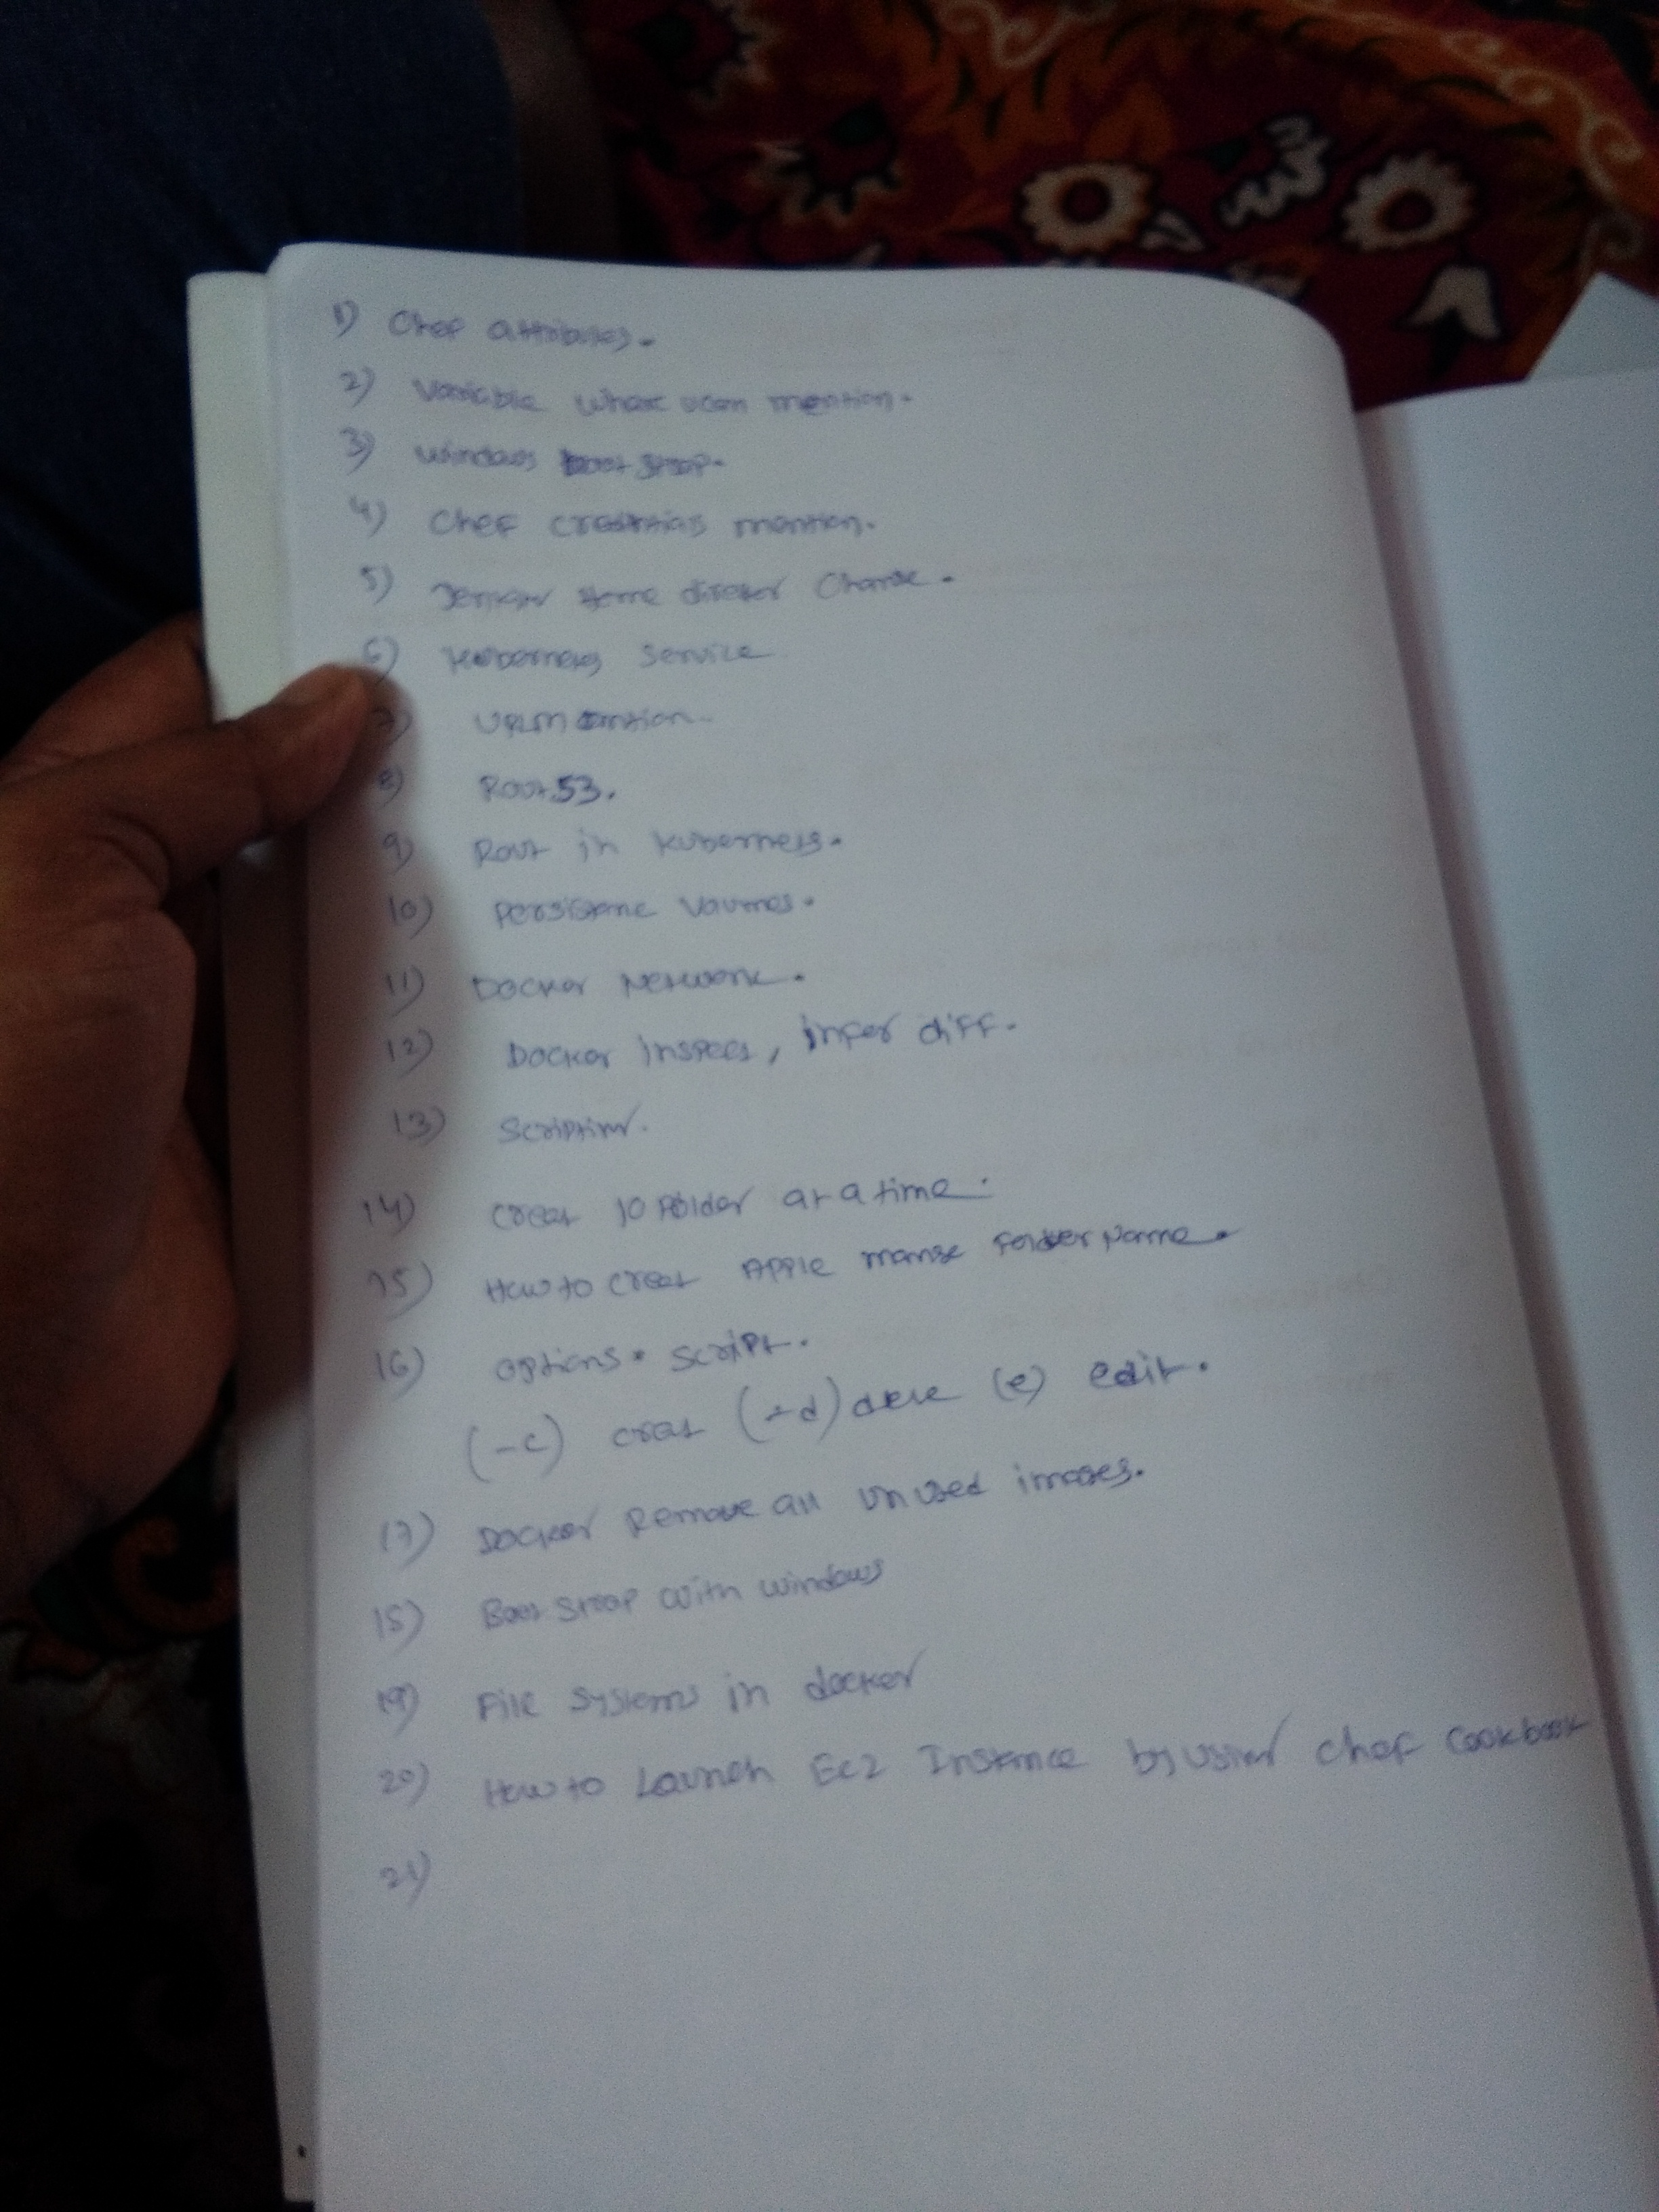 1) Chef attributes.
2) Variable where mention.
3) windows boot strap.
4) Chef mention.
5) Home Change.
6) Kubernetes service
7)
8) Rout53.
9) Rout in Kubernets.
10) Volumes.
11) Docker Network.
12) Docker inspect, diff.
13)
14) Creat 10 folder at a time.
15) How to creat Apple folder Name.
16) options. script.
(-c) creat (-d) (e) edit.
17) Docker Remove all un used images.
18) Boot strap with windows
19) File systems in docker
20) How to Launch Ec2 Instance by Chef Cookbook
21)